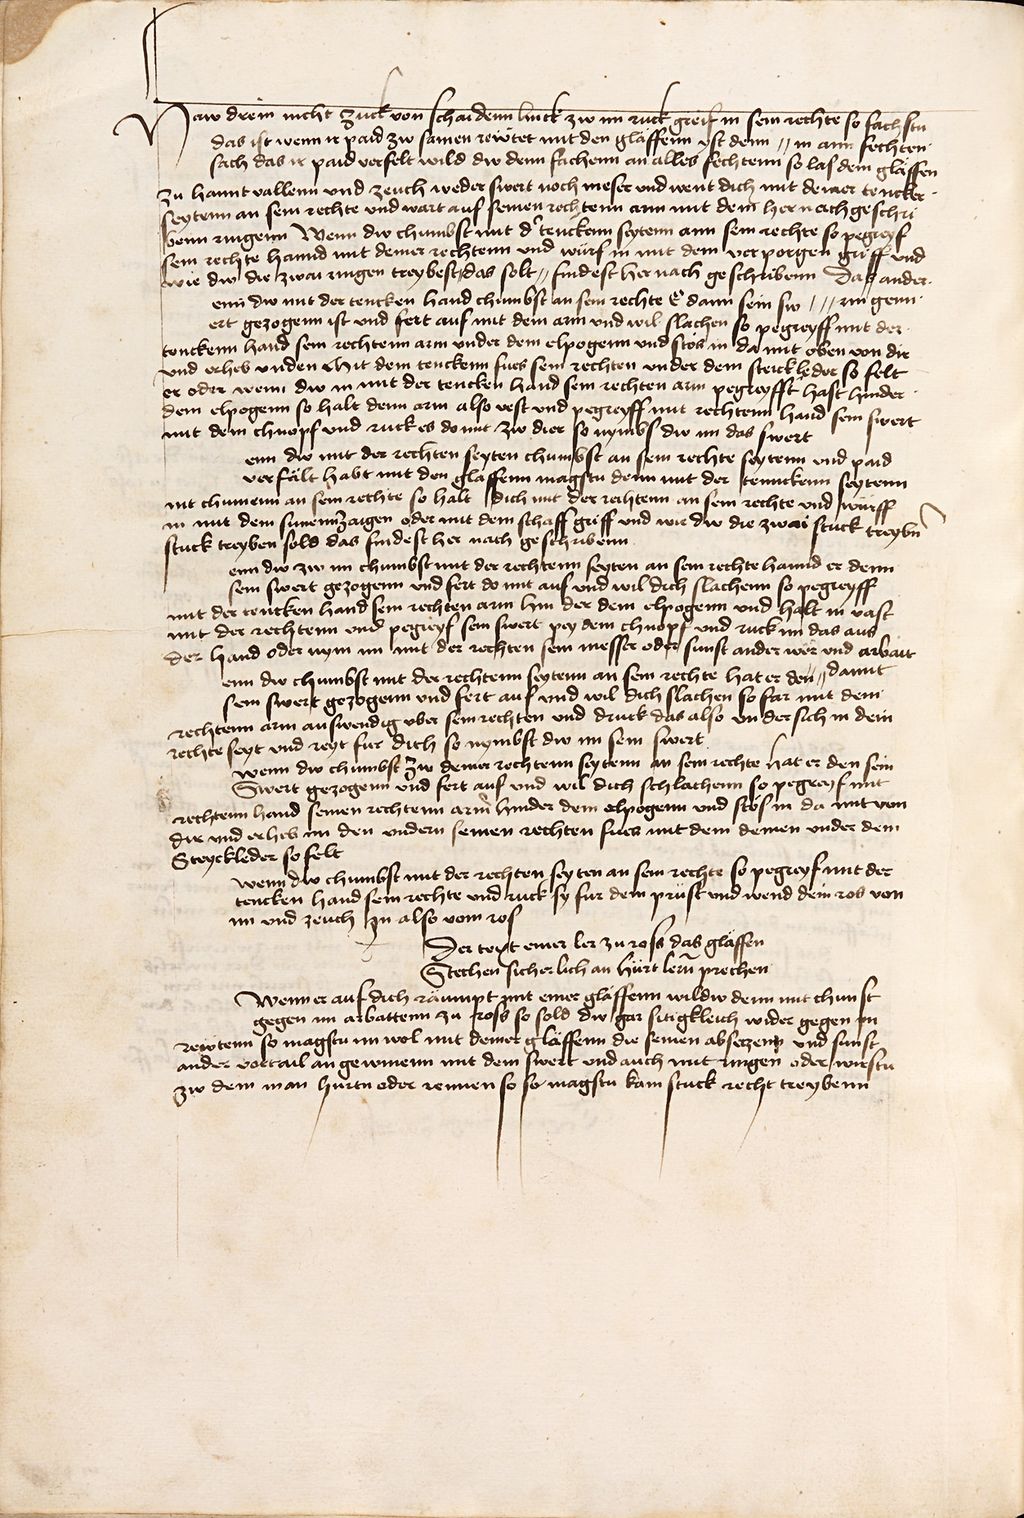 Haw drein nicht zuck von schaidenn linck zw im ruck greif in sein rechte so fach stu
das ist wenn ir paid zw samen rewtet mit den gläffenn yst denn // in ann fechten
sach das ir paid verfelt wild dw denn fachenn an alles fechtenn so las dein gläffen
zu hannt vallenn und zeuch weder swert noch meser und went dich mit deiner tencken
seytenn an sein rechte und wart auf seinen rechtenn arm mit dem her nach geschri
benn ringenn Wenn dw chumbst mit der tenckenn seytenn ann sein rechte so pegreyf
sein rechte hannd mit deiner rechtenn und würf in mit dem verporgen griff und
wie dw die zwai ringen treybest das solt // findest her nach geschribenn Das ander
enn dw mit der tencken hand chumbst an sein rechte E dann sein sw /// ringenn
ert gezogenn ist und fert auf mit dem arm und wil slachen so pegreyff mit der
tenckenn hand sein rechtenn arm under dem elpogenn und stos in da mit oben von dir
und erheb unden Mit dem tenckenn fues sein rechten under dem steickleder so felt
er oder wenn dw in mit der tencken hand sein rechten arm pegreyfft hast hinder
dem elpogenn so halt denn arm also vest und pegreyff mit rechtenn hand sein swert
mit dem chnopf und ruck es do mit zw dier so nymbs dw im das swert
enn dw mit der rechten seyten chumbst an sein rechte seytenn und paid
verfält habt mit den gläffenn magstu denn mit der tennckenn seytenn
nit chumenn an sein rechte so halt dich mit der rechtenn an sein rechte und würff
in mit dem sunennzaigen oder mit dem schaff griff und wie dw die zwai stuck treybn
stuck treyben sold das findest her nach geschribenn
enn dw zw im chumbst mit der rechtenn seyten an sein rechte hannd er denn
sein swert gezogenn und fert do mit auf und wil dich slachenn so pegreyff
mit der tencken hand sein rechten arm hin der dem elpogenn und halt in vast
mit der rechtenn und pegreyf sein swert pey dem chnopf und ruck im das aus
der hand oder nym im mit der rechten sein messer oder sunst ander wer und arbait
enn dw chumbst mit der rechtenn seytenn an sein rechte hat er den // damit
sein swert gezogenn und fert auf und wil dich slachen so far mit dem
rechtenn arm auswendig uber sein rechten und druck das also under sich in dein
rechte seyt und reyt fur dich so nymbst dw im sein swert
Wenn dw chumbst zw deiner rechtenn seytenn an sein rechte hat er den sein
Swert gezogenn und fert auf und wil dich schlachenn so pegreyf mit
rechtenn hand seinen rechtenn arm hinder dem elpogenn und stös in da mit von
dir und erheb im den undern seinen rechten fues mit dem deinen under dem
Steyckleder so felt
Wenn dw chumbst mit der rechten seyten an sein rechte so pegreyf mit der
tencken hand sein rechte und ruck sy fur dein prüst und wend dein ros von
im und zeuch in also vom ros
Der text einer ler zu ross das gläffen
Stechen sicherlich an hürt lern prechen
Wenn er auf dich räumpt mit einer gläffenn wildw denn mit chunst
gegen im arbattenn zu ross so sold dw gar sitigkleich wider gegen im
rewtenn so magstu im wol mit deiner gläffenn die seinen absetzenn und sunst
ander vortail an gewinenn mit dem swert und auch mit ringen oder wirstu
zw dem man hurtn oder rennen so so magstu kain stuck recht treybenn